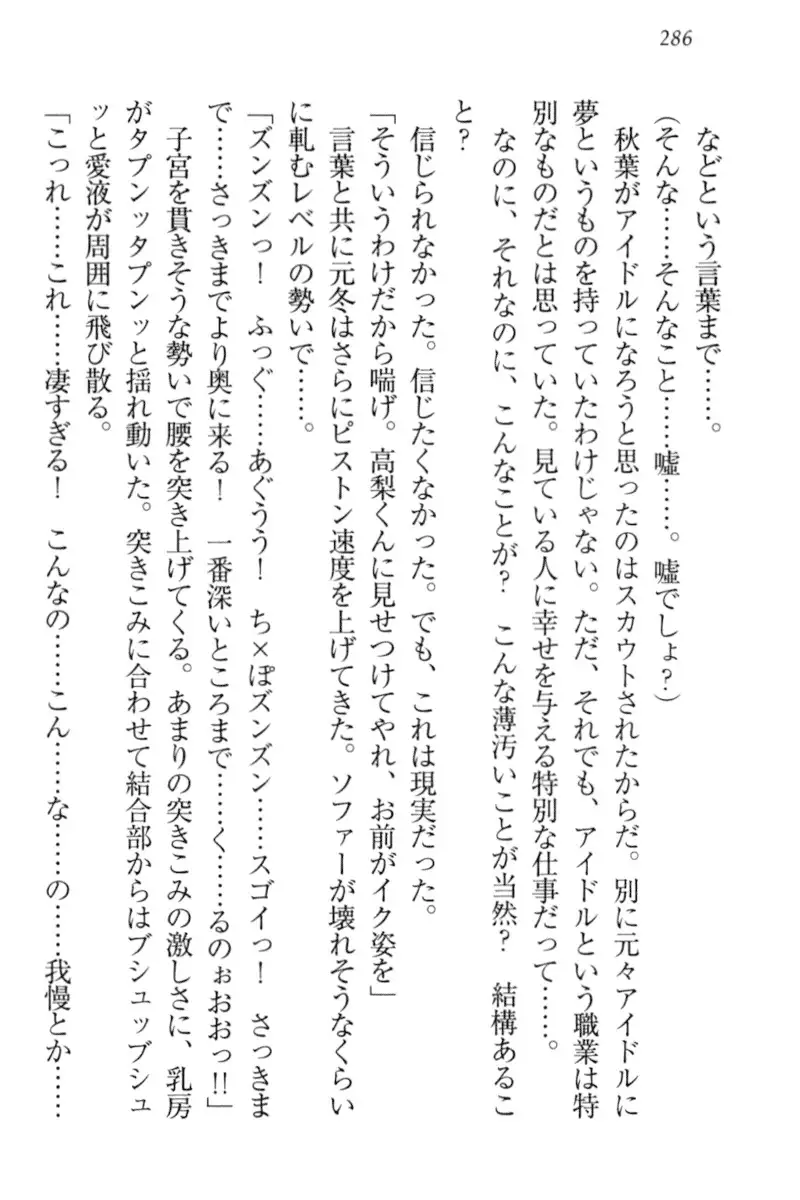 286
などという言葉まで……。
(そんな……そんなこと……嘘……。嘘でしょ?)
秋葉がアイドルになろうと思ったのはスカウトされたからだ。別に元々アイドルに
夢というものを持っていたわけじゃない。ただ、それでも、アイドルという職業は特
別なものだとは思っていた。見ている人に幸せを与える特別な仕事だって……。
なのに、それなのに、こんなことが? こんな薄汚いことが当然? 結構あるこ
と?
信じられなかった。信じたくなかった。でも、これは現実だった。
「そういうわけだから喘げ。高梨くんに見せつけてやれ、お前がイク姿を」
言葉と共に元冬はさらにピストン速度を上げてきた。ソファーが壊れそうなくらい
に軋むレベルの勢いで……。
「ズンズンっ! ふっぐ……あぐうう! ち×ぽズンズン……スゴイっ! さっきま
で……さっきまでより奥に来る! 一番深いところまで……く……るのぉおおっ!!」
子宮を貫きそうな勢いで腰を突き上げてくる。あまりの突きこみの激しさに、乳房
がタプンッタプンッと揺れ動いた。突きこみに合わせて結合部からはブシュッブシュ
ッと愛液が周囲に飛び散る。
「こっれ……これ……凄すぎる! こんなの……こん……な……の……我慢とか……